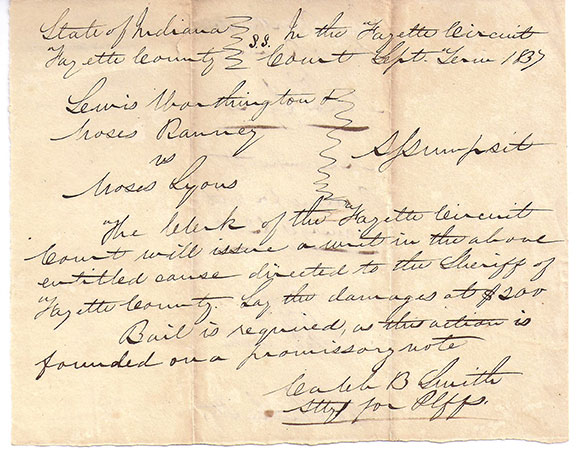 State of Indiana S.S. In the Fayette Circuit
Fayette County Court Sept. Term 1837
Lewis Worthington &
Moses Ranney
vs Assumpsit
Moses Lyons
The Clerk of the Fayette Circuit
Court will issue a writ in the above
entitled cause directed to the Sheriff of
Fayette County. Lay the damages at $200
Bail is required, as this action is
founded on a promissory note
Caleb B Smith
Atty for Plffs.